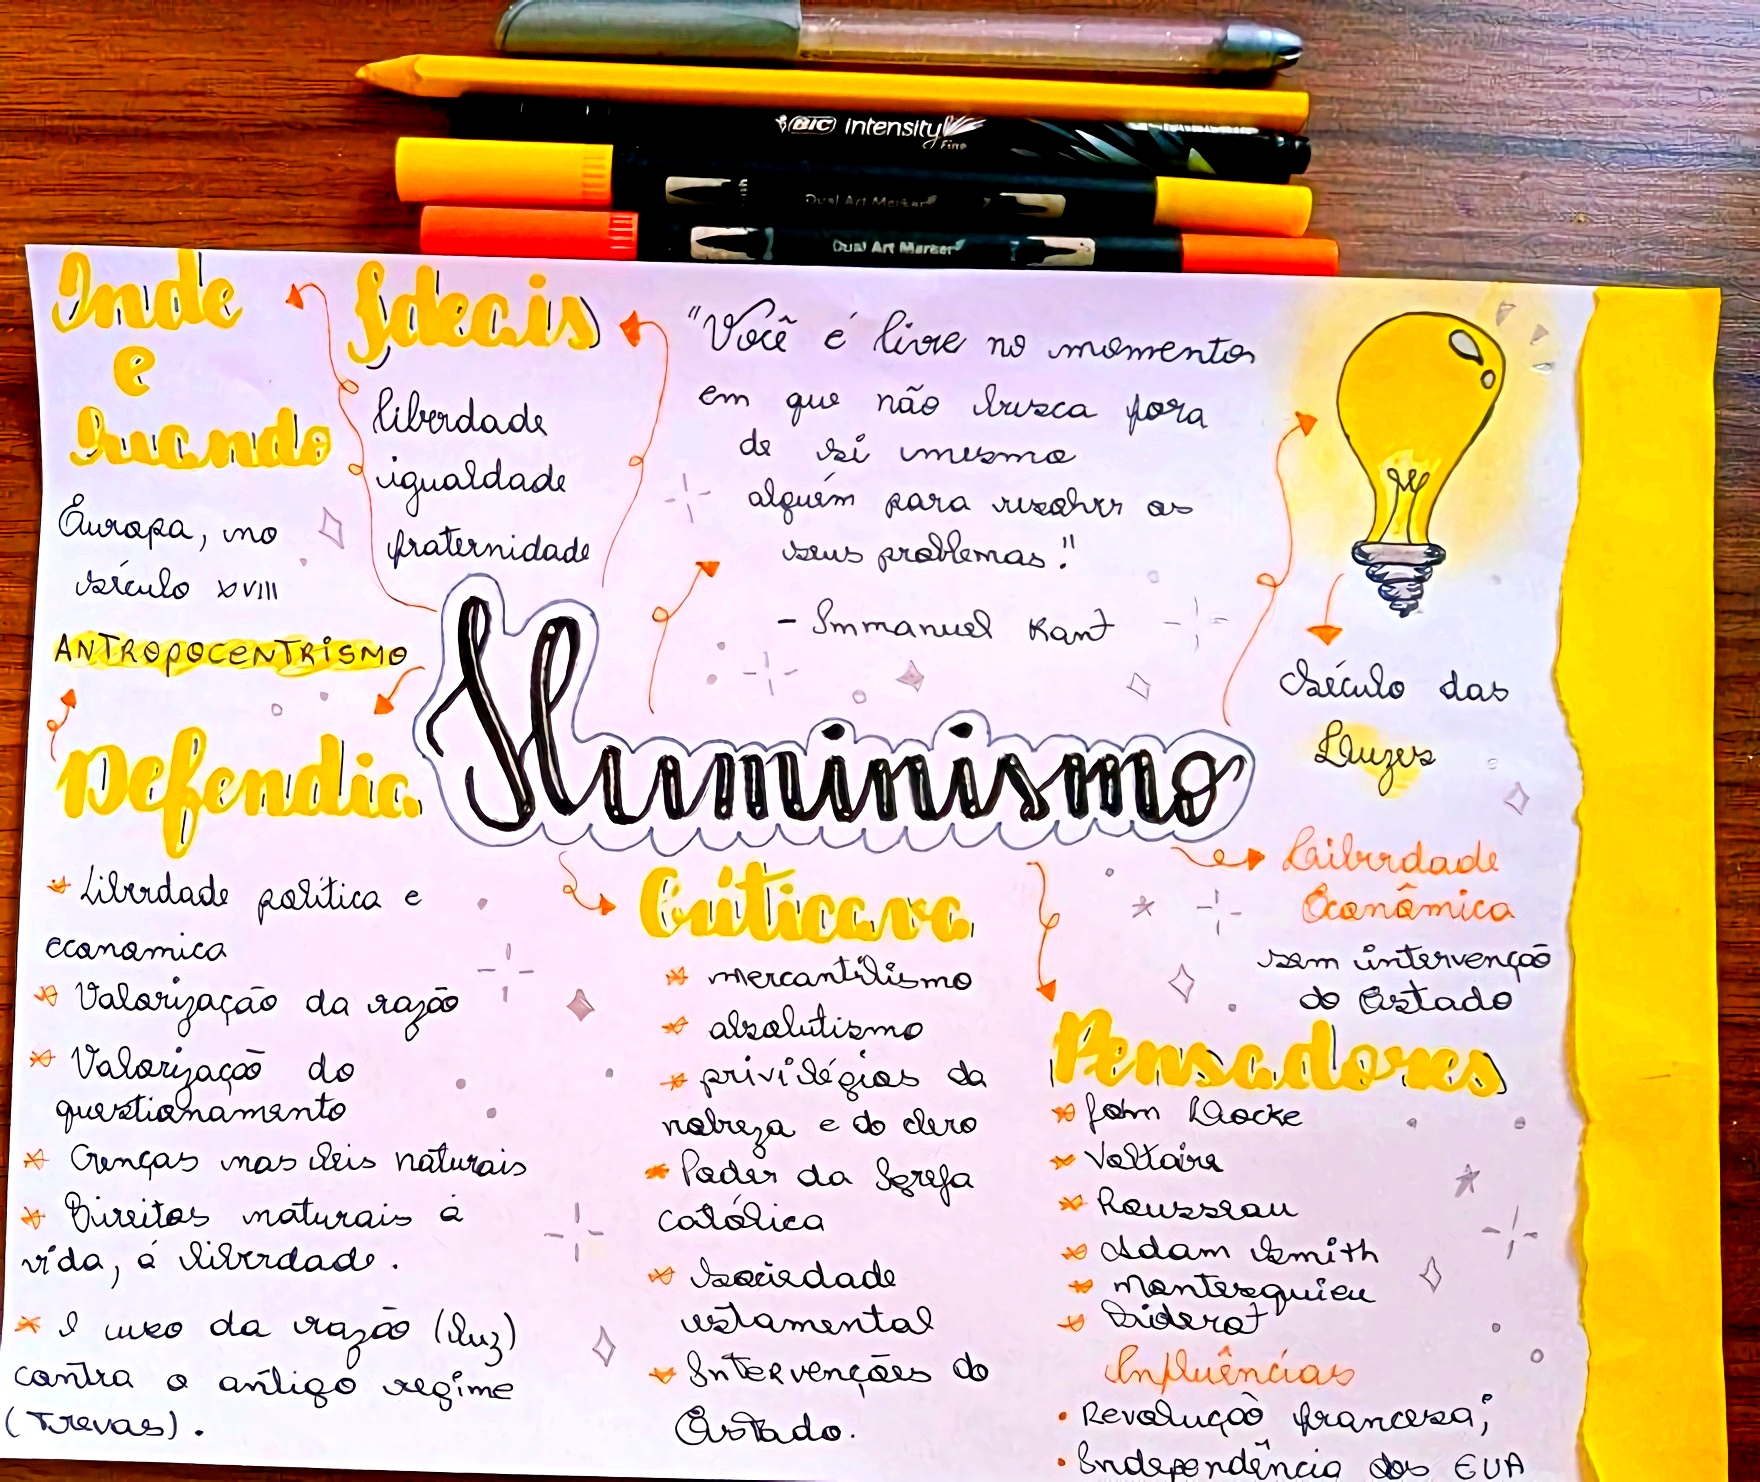 BIC intensity
Fine
Dual Art Marker
Dual Art Marker
Onde
e
quando
Europa, no
século XVIII
ANTROPOCENTRISMO
Ideais
liberdade
igualdade
fraternidade
"Você é livre no momento
em que não busca fora
de si mesmo
alguém para resolver os
seus problemas!"
- Immanuel Kant
Século das
Luzes
Iluminismo
Defendia
Liberdade política e
economica
Valorização da razão
Valorização do
questionamento
Crenças nas leis naturais
Direitos naturais à
vida, á liberdade.
O uso da razão (luz)
contra o antigo regime
(Trevas).
Criticava
mercantilismo
absolutismo
privilégios da
nobreza e do clero
Poder da Igreja
católica
Sociedade
estamental
Intervenções do
Estado.
Liberdade
Econômica
sem intervenção
do Estado
Pensadores
John Locke
Voltaire
Rousseau
Adam Smith
Montesquieu
Diderot
Influências
• Revolução francesa;
• Independência dos EUA